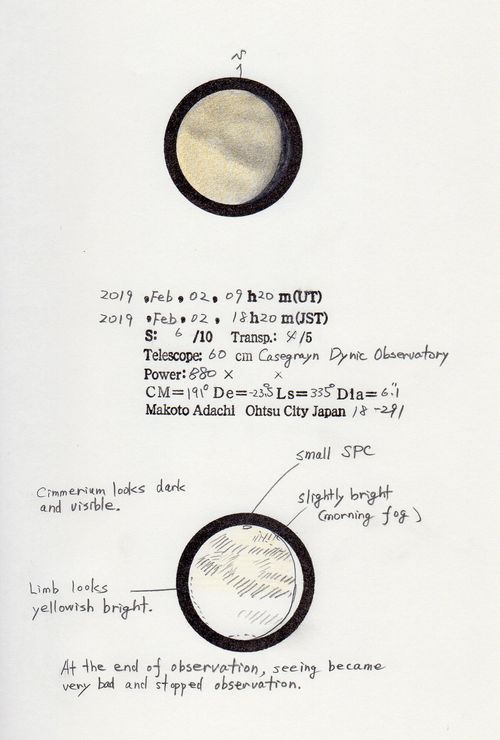 N
2019 , Feb , 02 , 09 h20 m(UT)
2019 , Feb , 02 , 18 h20 m(JST)
S: 6 /10 Transp.: 4/5
Telescope: 60 cm Casegrayn Dynic Observatory
Power: 880 × ×
CM=191° De=-23.5° Ls=335° Dia=6".1
Makoto Adachi Ohtsu City Japan 18-291
small SPC
Cimmerium looks dark
and visible.
slightly bright
(morning fog)
Limb looks
yellowish bright.
At the end of observation, seeing became
very bad and stopped observation.